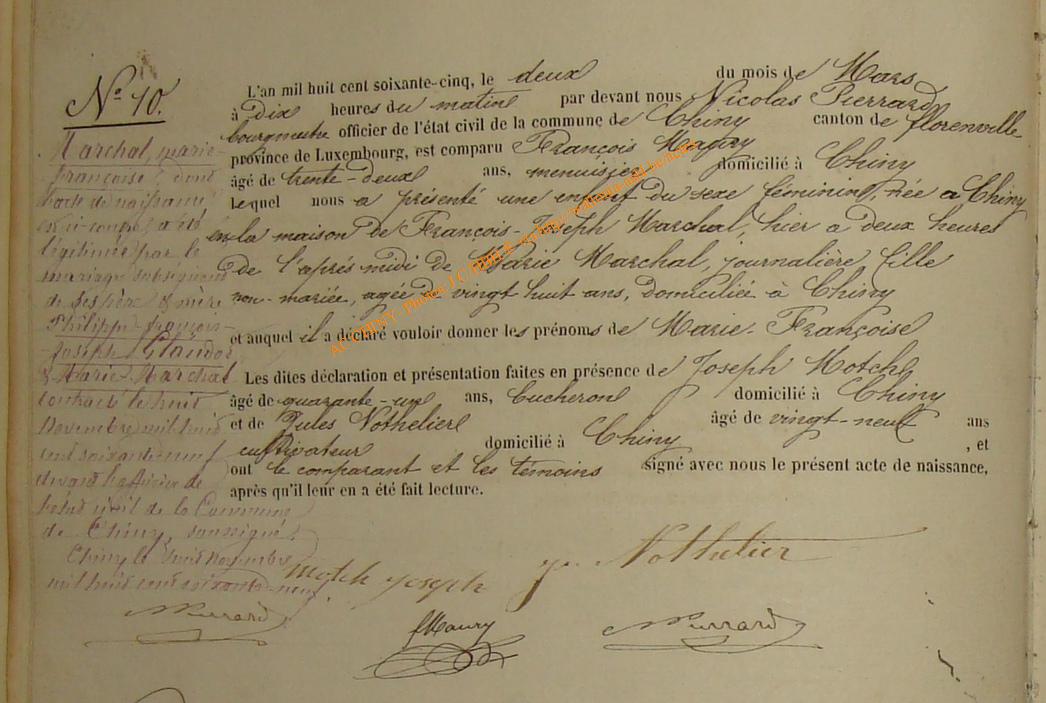 N° 10.
Marchal, marie-
françoise, dont
l'acte de naissance
est ci-contre, a été
légitimée par le
mariage subséquent
de ses père & mère
Philippe-françois-
-joseph Claudot
& Marie Marchal
contracté le huit
Novembre mil huit
cent soixante-neuf
devant l'officier de
l'état civil de la Commune
de Chiny, soussigné.
Chiny le huit novembre
mil huit cent soixante-neuf
NPierrard
L'an mil huit cent soixante-cinq, le deux du mois de Mars
à Dix heures du matin par devant nous Nicolas Pierrard
bourgmestre officier de l'état civil de la commune de Chiny canton de florenville
province de Luxembourg, est comparu François Maury
âgé de trente-deux ans, menuisier domicilié à Chiny
Lequel nous a présenté une enfant du sexe féminin, née à Chiny
en la maison de François-Joseph Marchal, hier à deux heures
de l'après midi de Marie Marchal, journalière fille
non-mariée, agée de vingt huit ans, domiciliée à Chiny
et auquel il a déclaré vouloir donner les prénoms de Marie-Françoise
Les dites déclaration et présentation faites en présence de Joseph Motch
âgé de quarante-un ans, bucheron domicilié à Chiny
et de Jules Nothelier âgé de vingt-neuf ans
cultivateur domicilié à Chiny, et
ont le comparant et les témoins signé avec nous le présent acte de naissance,
après qu'il leur en a été fait lecture.
motch joseph Nothelier
fMaury NPierrard